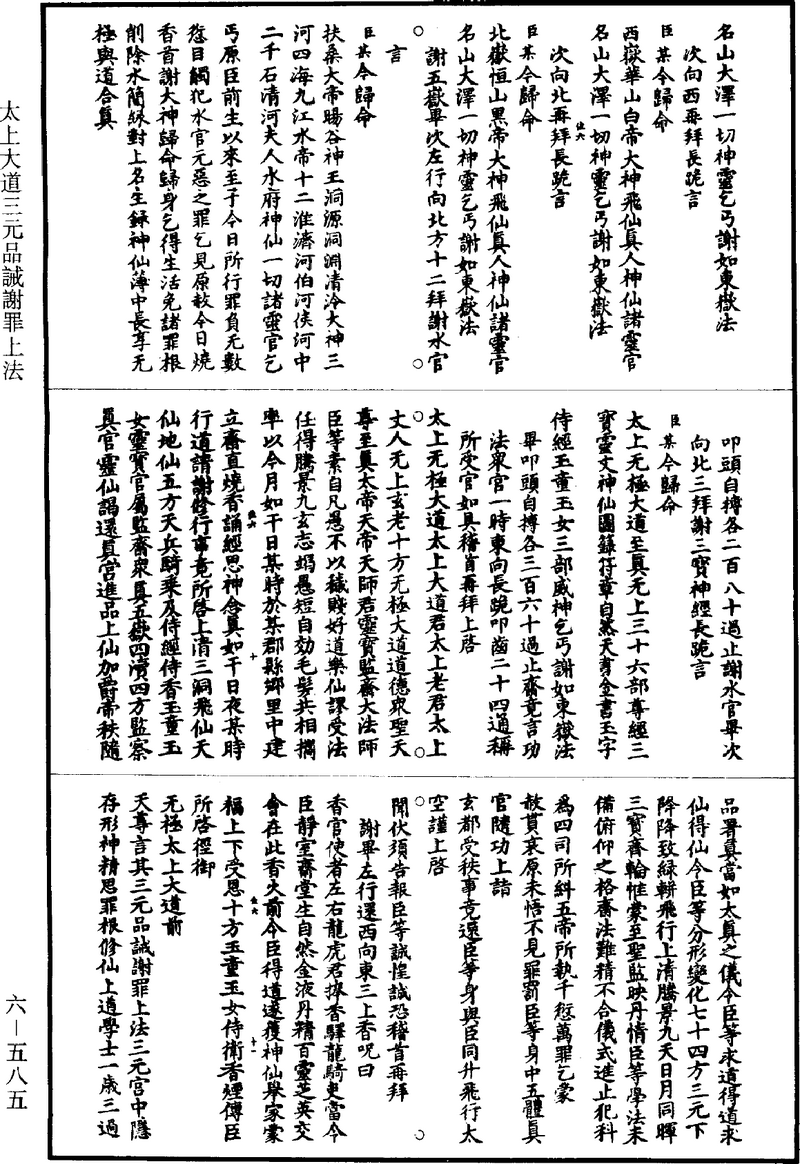 太上大道三元品誡謝罪上法
六－五八五
名山大澤一切神靈乞丐謝如東嶽法
次向西再拜長跪言
臣某今歸命
西嶽華山白帝大神飛仙真人神仙諸靈官
名山大澤一切神靈乞丐謝如東嶽法
次向北再拜長跪言
臣某今歸命
北嶽恒山黑帝大神飛仙真人神仙諸靈官
名山大澤一切神靈乞丐謝如東嶽法
謝五嶽畢次左行向北方十二拜謝水官
言
臣某今歸命
扶桑大帝暘谷神王洞源洞淵清泠大神三
河四海九江水帝十二淮濟河伯河侯河中
二千石清河夫人水府神仙一切諸靈官乞
丐原臣前生以來至于今日所行罪負无數
愆目觸犯水官元惡之罪乞見原赦今日燒
香首謝大神歸命歸身乞得生活免諸罪根
削除水簡緣對上名生錄神仙簿中長享无
極與道合真
叩頭自搏各二百八十過止謝水官畢次
向北三拜謝三寶神經長跪言
臣某今歸命
太上无極大道至真无上三十六部尊經三
寶靈文神仙圖籙符章自然天書金書玉字
侍經玉童玉女三部威神乞丐謝如東嶽法
畢叩頭自搏各三百六十過止齋竟言功
法眾官一時東向長跪叩齒二十四通稱
所受官如具稽首再拜上啓
太上无極大道太上大道君太上老君太上
丈人无上玄老十方无極大道道德眾聖天
尊至真太帝天帝天師君靈寶監齋大法師
臣等素自凡愚不以穢賤好道樂仙謬受法
任得騰景九玄志竭愚短自効毛髮共相攜
率以今月如干日某時於某郡縣鄉里中建
立齋直燒香誦經思神念真如干日夜某時
行道請謝修行事竟所啓上清三洞飛仙天
仙地仙五方天兵騎乘及侍經侍香玉童玉
女靈寶官屬監齋眾真五嶽四瀆四方監察
真官靈仙謁還真宮進品上仙加爵帝秩隨
品署真當如太真之儀今臣等求道得道求
仙得仙令臣等分形變化七十四方三元下
降降致緑軿飛行上清騰景九天日月同暉
三寶齋輪惟蒙至聖監映丹情臣等學法未
備俯仰之格齋法難精不合儀式進止犯科
爲四司所糾五帝所執千愆萬罪乞蒙
赦貰哀原未悟不見罪罰臣等身中五體真
官隨功上詣
玄都受秩事竟還臣等身與臣同升飛行太
空謹上啓
聞伏須告報臣等誠惶誠恐稽首再拜
謝畢左行還西向東三上香呪曰
香官使者左右龍虎君捧香驛龍騎吏當令
臣靜室齋堂生自然金液丹精百靈芝英交
會在此香火前令臣得道遂獲神仙舉家蒙
福上下受恩十方玉童玉女侍衛香煙傳臣
所啓徑御
无極太上大道前
天尊言其三元品誡謝罪上法三元宮中隱
存形神精思罪根修仙上道學士一歲三過